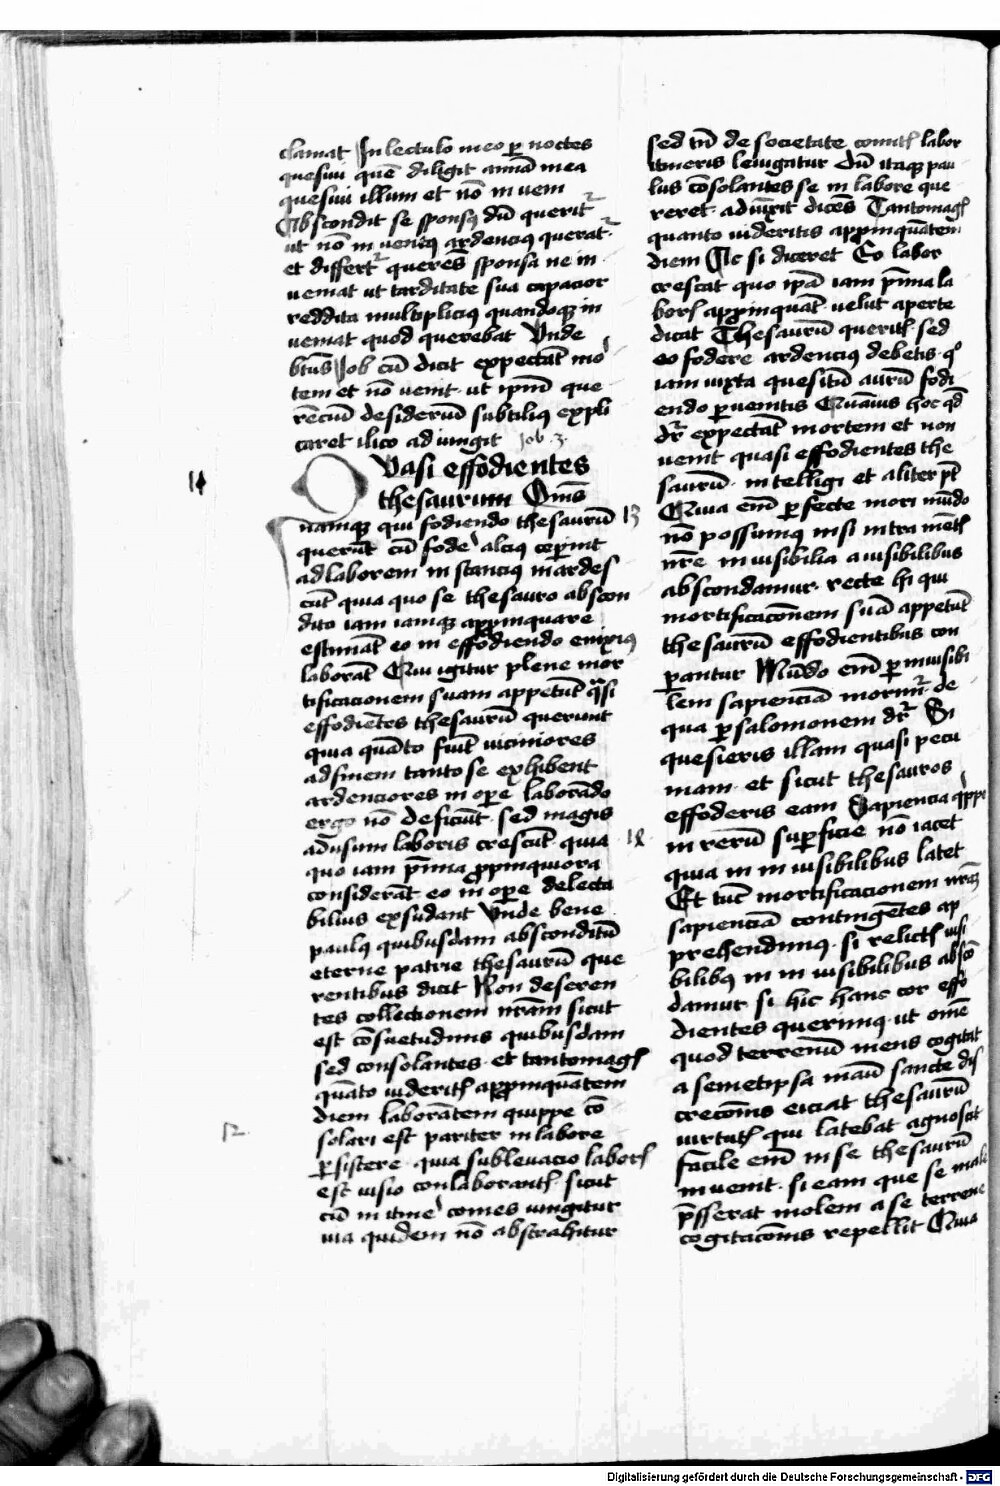 clamat In lectulo meo p̱ noctes
quesiui quē diligit aīma mea
quesiui illum et nō in veni
Abscondit se sponsꝰ dū querit᷑
ut nō in ventꝰ ardenciꝰ querat᷑
et differt᷑ querēs sponsa ne in
ueniat ut tarditate sua capacior
reddita multipliciꝰ quandoqꝫ in
ueniat quod querebat Vnde
btūs Job cū dicit expectāt mo
tem et nō venit ut ipm̄ que
rēciū desideriū subtiliꝰ expli
caret ilico adiungit Job .3.
Quasi effodientes
thesaurum Om̄s
14
namqꝫ qui fodiendo thesaurū
querūt cū fode alcius ceperint
ad laborem instanciꝰ inardes
cūt quia quo se thesauro abscon
dito iam iamqꝫ appinquare
estimāt eo in effodiendo enixiꝰ
laborāt Qui igitur plene mor
tificacionem suam appetūt q̄si
effodiētes thesaurū querunt
quia quāto fiūt viciniores
ad finem tanto se exhibent
ardenciores in oꝑe laborādo
ergo nō deficiūt sed magis
ad usum laboris crescūt quia
quo iam p̄mia ꝓpinquiora
considerāt eo in oꝑe delecta
bilius exsudant Vnde bene
paulꝰ quibusdam absconditū
eterne patrie thesaurū que
rentibus dicit Non deseren
tes collectionem nr̄am sicut
est cōsuetudinis quibusdam
sed consolantes et tantomagꝭ
quāto uideritꝭ appinquātem
diem laborātem quippe cō
12
solari est pariter in labore
ꝑsistere quia subleuacio laborꝭ
est uisio conlaborantꝭ sicut
cū in itine comes iungitur
uia quidem nō abstrahitur
sed tn̄ de societate comitꝭ labor
itineris leuigatur Dū itaqꝫ pau
lus cōsolantes se in labore que
reret adiūxit dicēs Tantomagꝭ
quanto uideritis appinquātem
diem Ac si diceret Eo labor
crescat quo ipā iam p̄mia la
borꝭ appinquāt uelut aperte
dicat Thesaurū queritꝭ sed
eo fodere ardencius debetis qꝰ
iam iuxta quesitū aurū fodi
endo ꝑuenitis Quāuis hoc qd̄
dr̄ expectāt mortem et non
uenit quasi effodientes the
saurū intelligi et aliter pt̄
13
Quia eni̅ ꝑfecte mori mūdo
nō possumꝰ nisi intra mētꝭ
nr̄e inuisibilia a uisibilibus
abscondamur recte hi qui
mortificacōnem suā appetūt
thesaurū effodientibus con
parantur Mūdo eni̅ ꝑ inuisibi
lem sapienciā morimr᷑ de
qua ꝑ salomonem dr̄ Si
quesieris illam quasi pecu
niam et sicut thesauros
effoderis eam Sapiencia qppe
18
in rerū suꝑficie nō iacet
quia in inuisibilibus latet
Et tūc mortificacionem nrāȝ
sapienciā contingētes ap
prehendimꝰ si relictꝭ uisi
bilibꝰ in inuisibilibus abscō
damur si hic hanc cor effo
dientes querimꝰ ut omē
quod terrenū mens cogitat
a semetipsa manū sancte dis
crecōnis eiciat thesaurū
uirtutꝭ qui latebat agnoscit
facile eni̅ in se thesaurū
inuenit si eam que se male
p̄sserat molem a se terrene
cogitacōnis repellit Quia
Digitalisierung gefördert durch die Deutsche Forschungsgemeinschaft - DFG